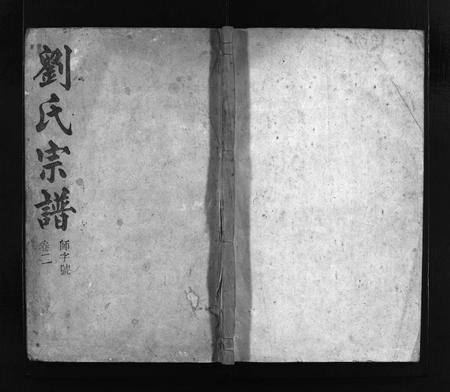 劉氏宗譜
師字號
卷二